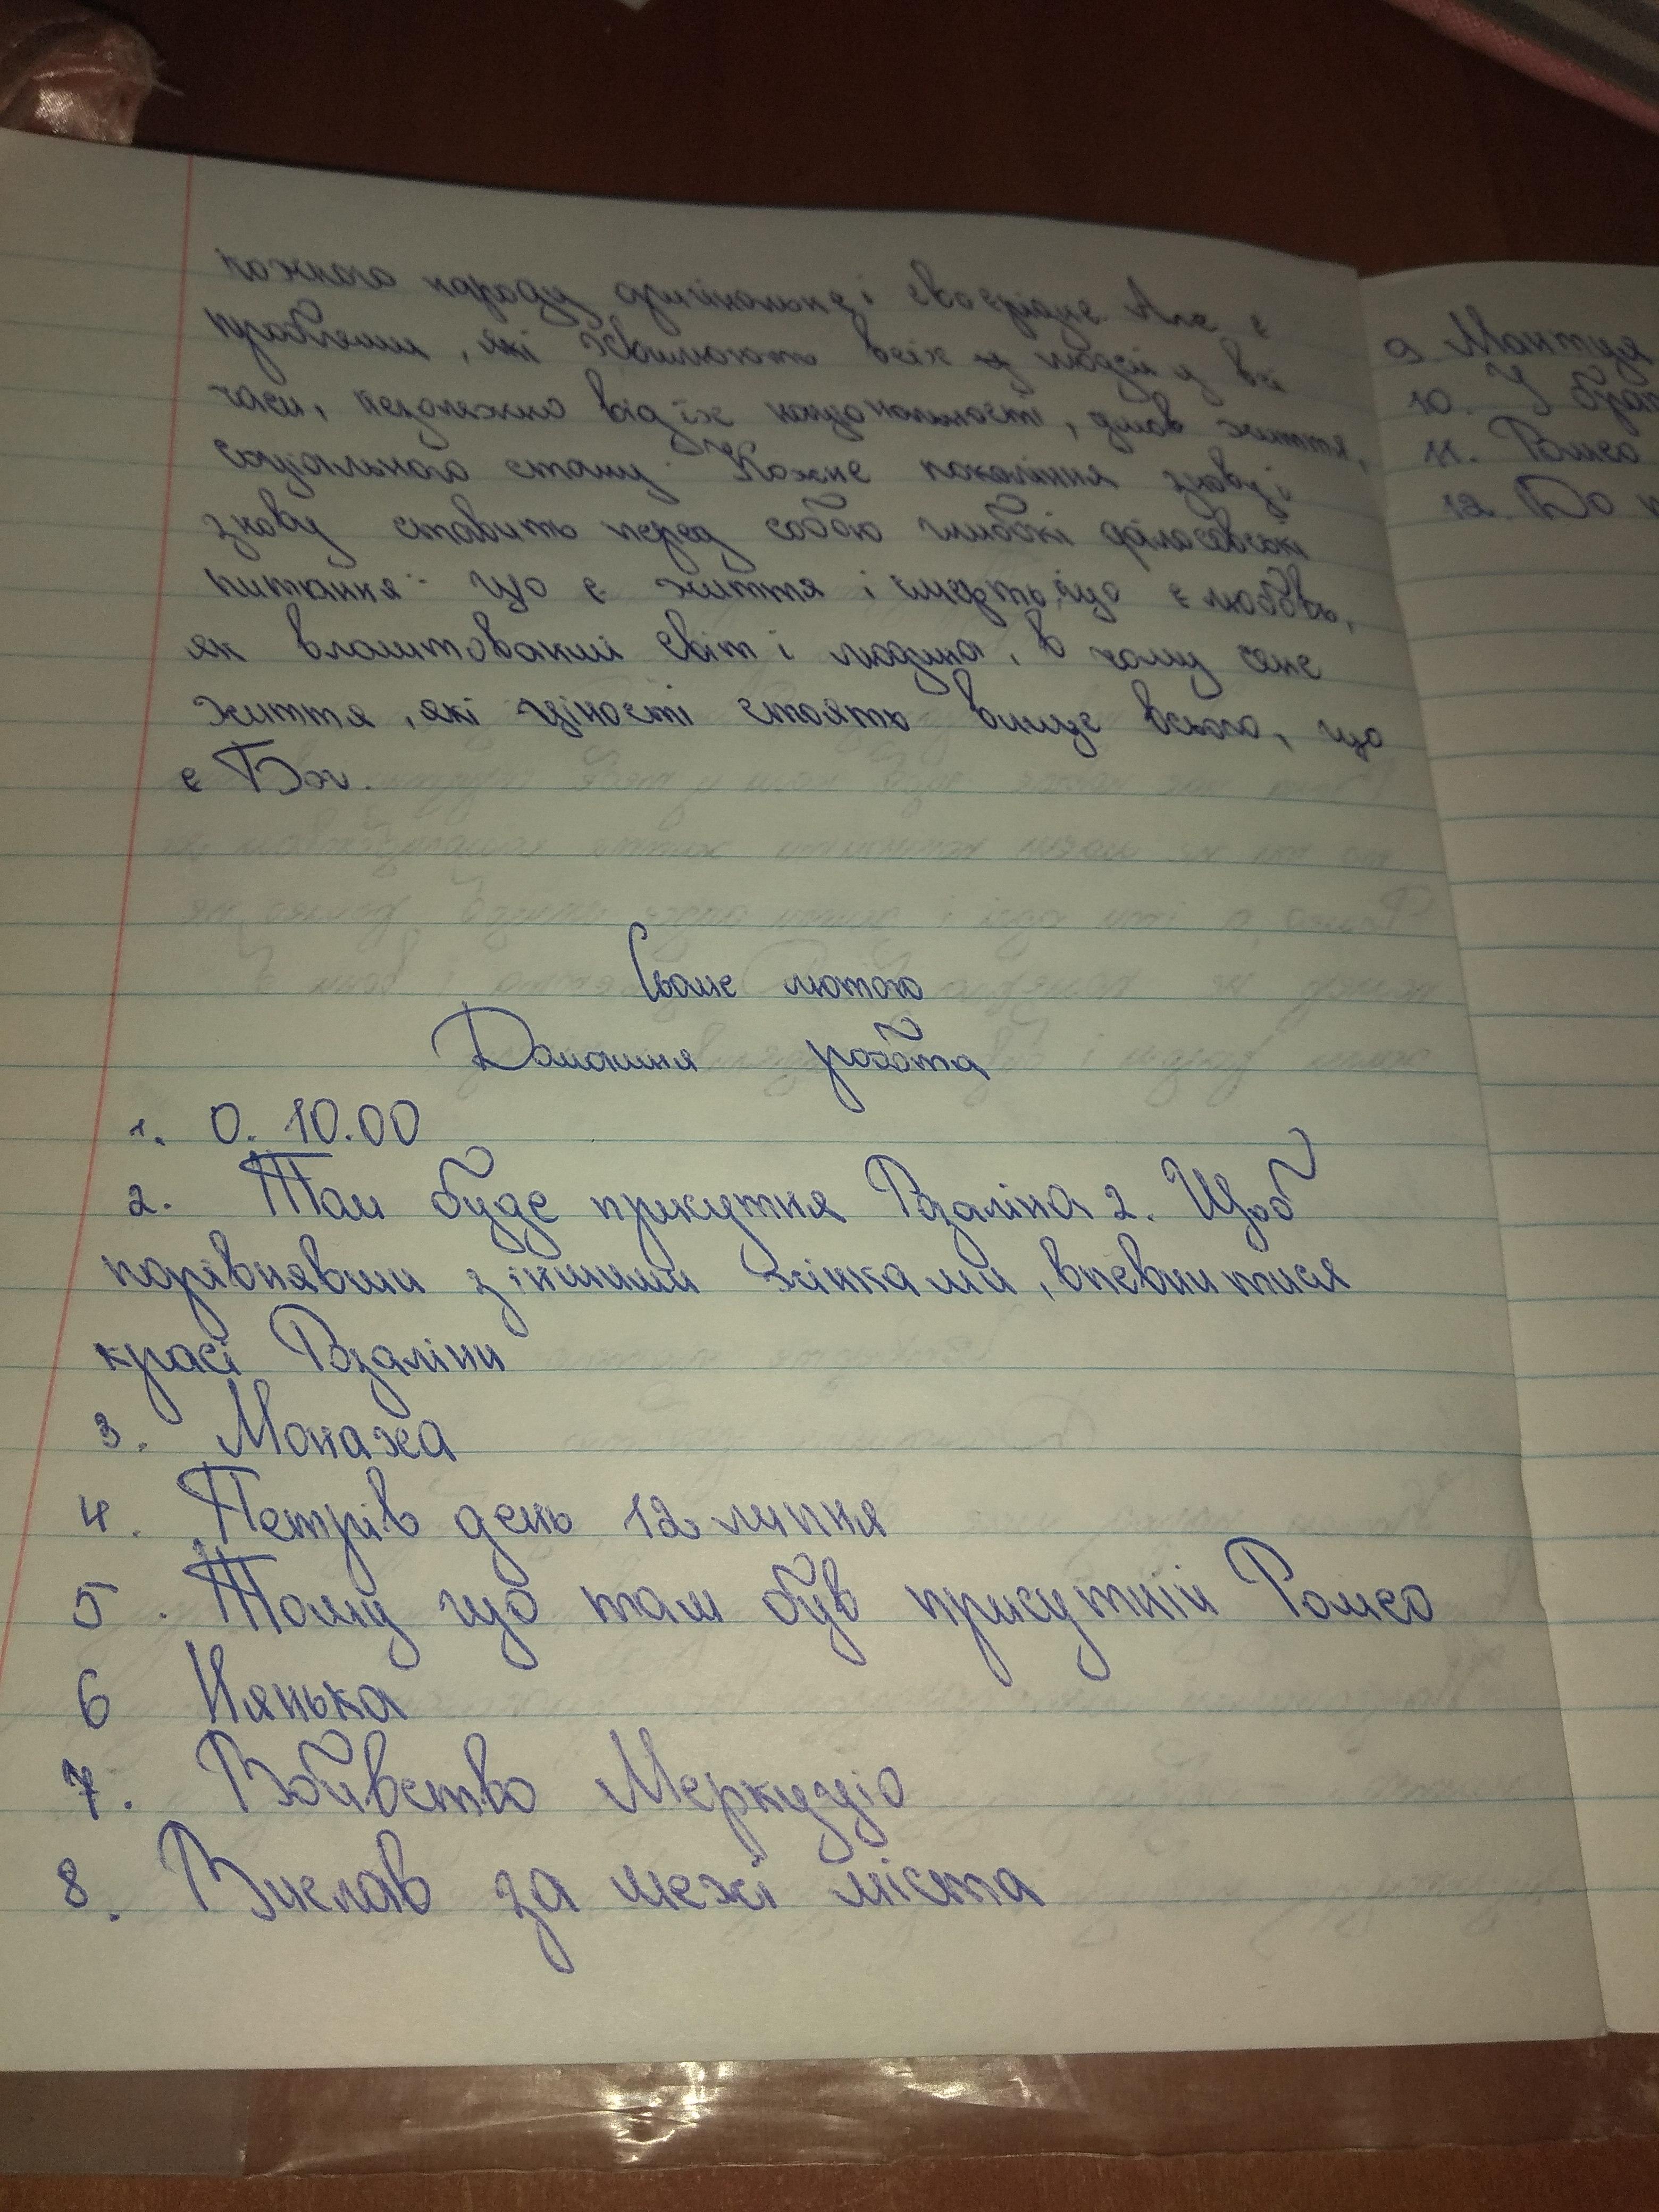 кожного народу оригінальне і своєрідне. Але є
проблеми, які хвилюють всіх у людей у всі
часи, незалежно від їх національності, умов життя,
соціального стану. Кожне покоління знову і
знову ставить перед собою глибокі філософські
питання: що є життя і смерть, що є любовь,
як влаштований світ і людина, в чому сенс
життя, які цінності стоять вище всього, що
є Бог.
Сьоме лютого
Домашня робота
1. О. 10.00
2. Там буде присутня Розаліна 2. Щоб
порівнявши з іншими жінками, впевнитися
красі Розаліни
3. Монаха
4. Петрів день, 12 липня
5. Тому що там був присутній Ромео
6 Нянька
7. Вбивство Меркуціо
8. Вислав за межі міста
9. Мантуя
10. У
11. Ромео
12. До